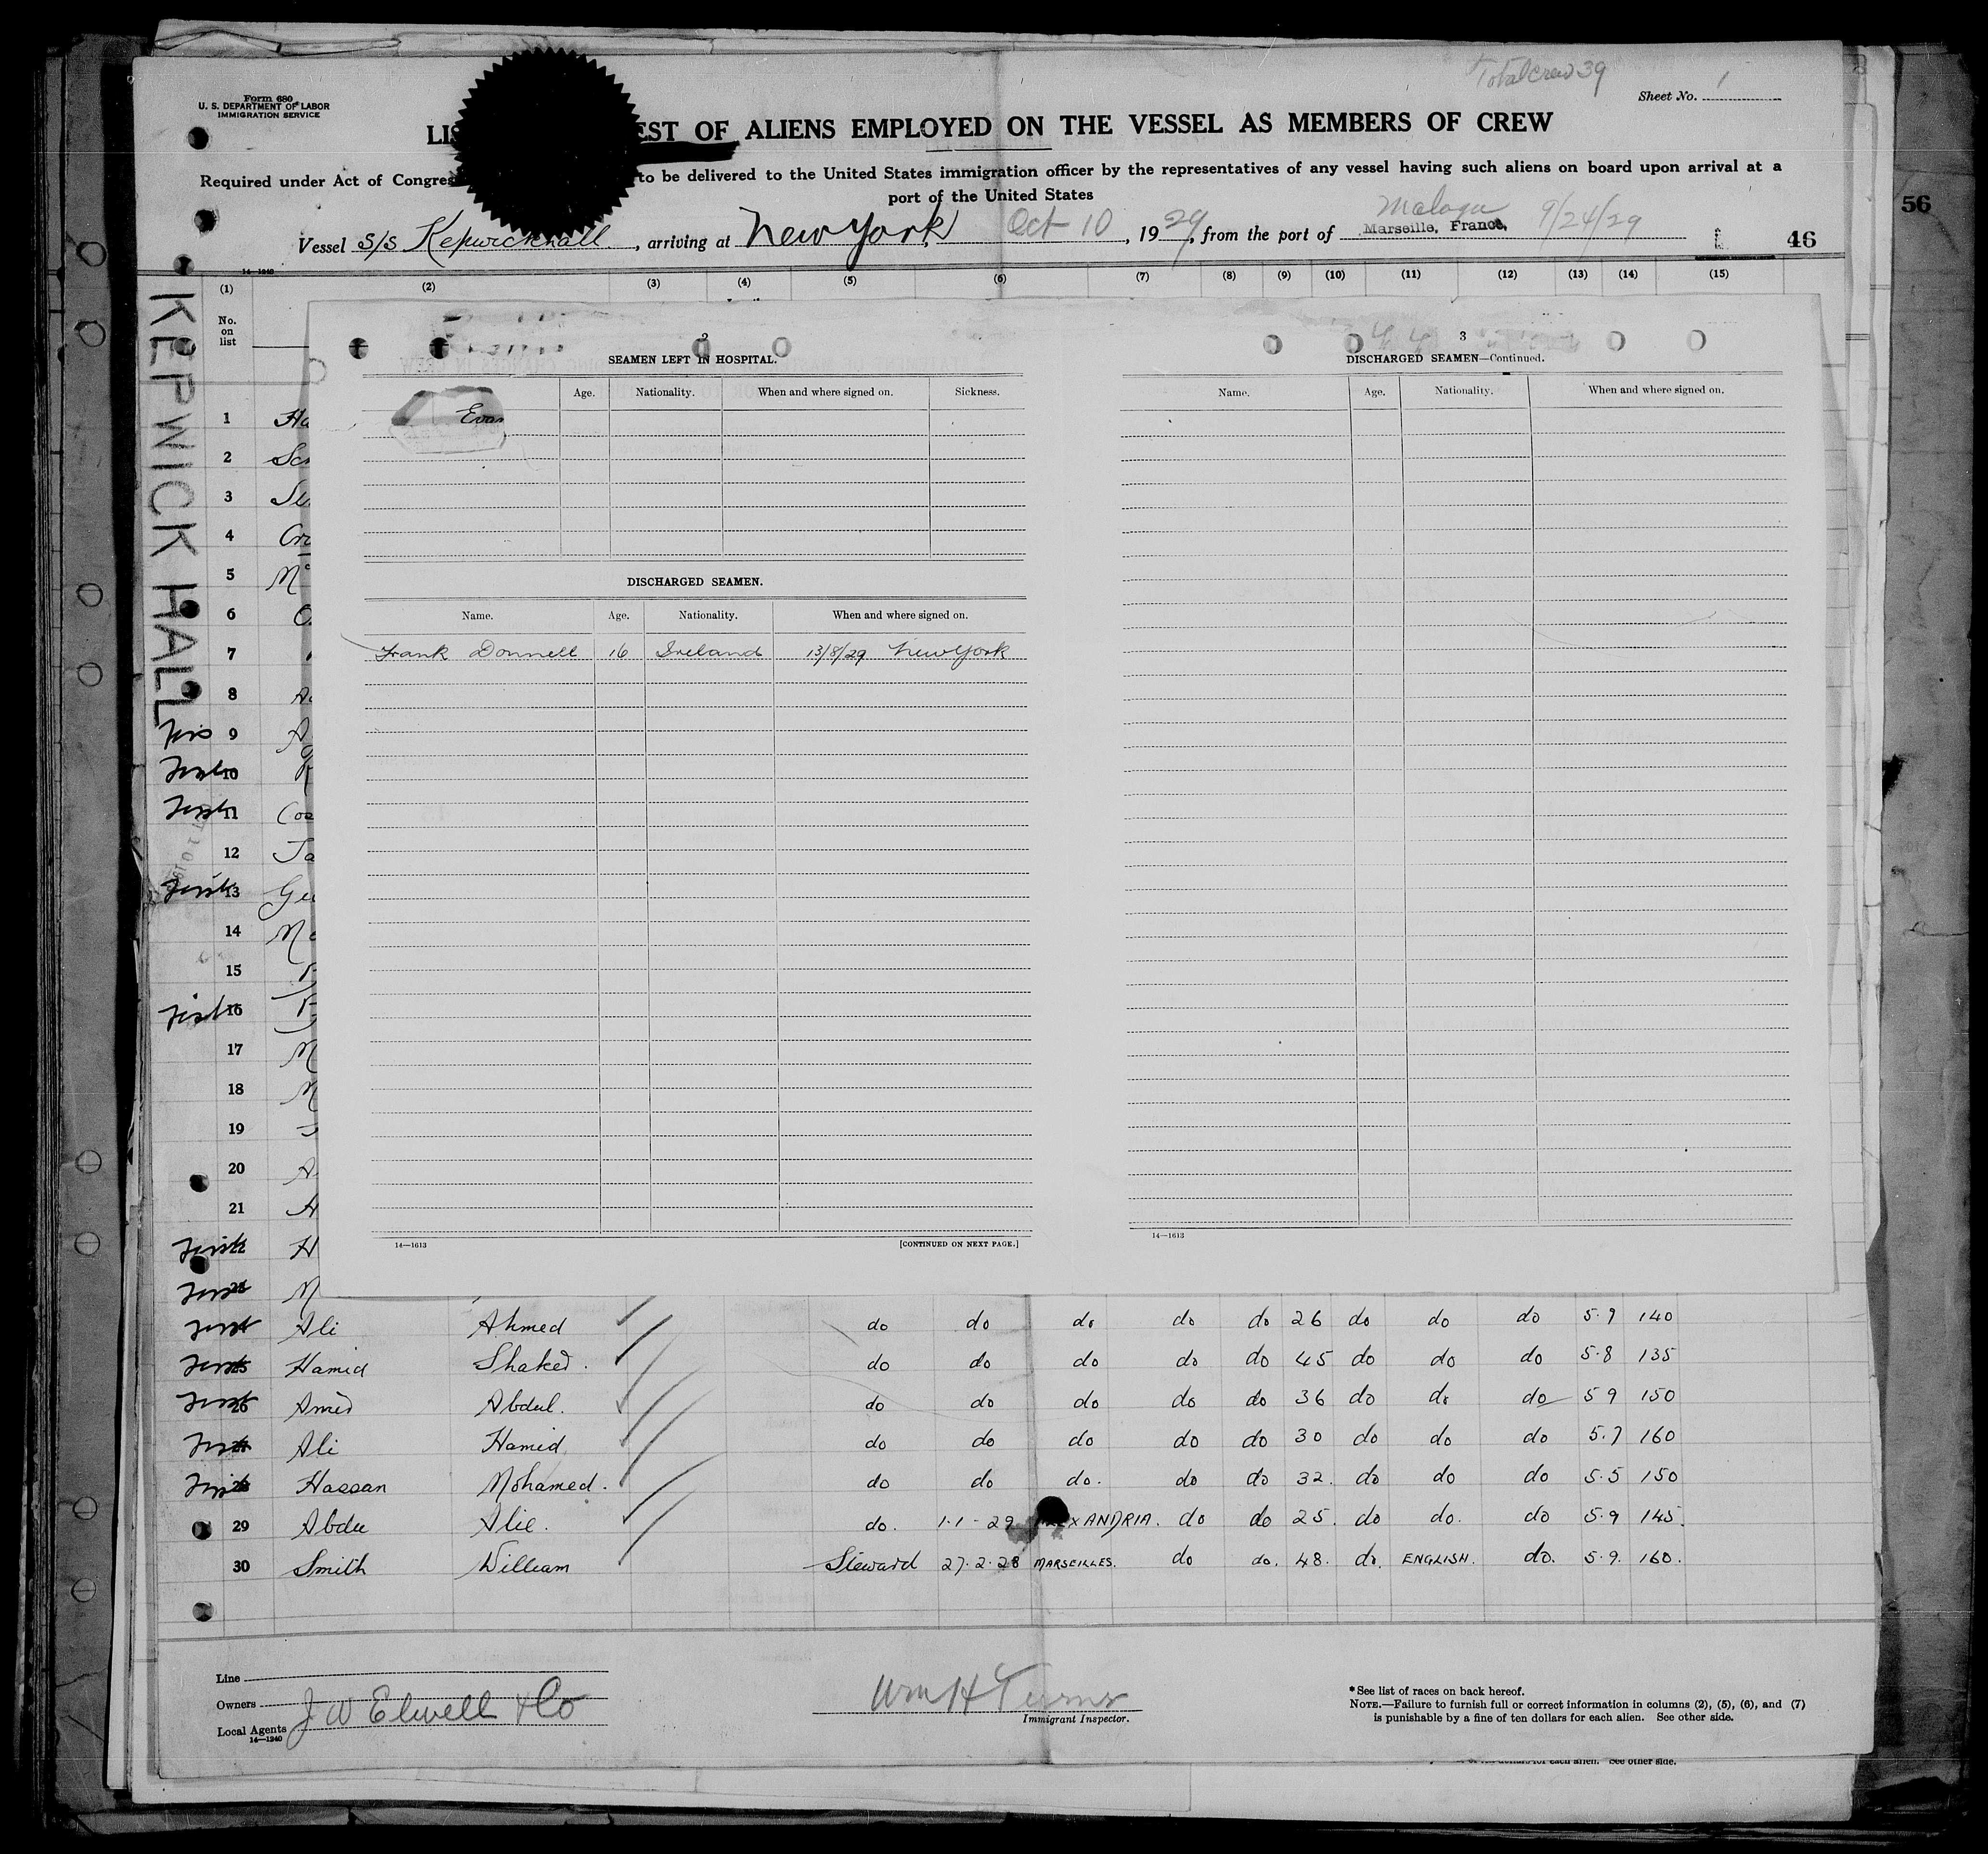 Total Crew 39
Form 680
U. S. DEPARTMENT OF LABOR
IMMIGRATION SERVICE
Sheet No. 1
LIS EST OF ALIENS EMPLOYED ON THE VESSEL AS MEMBERS OF CREW
Required under Act of Congres to be delivered to the United States immigration officer by the representatives of any vessel having such aliens on board upon arrival at a
port of the United States
56
Malaga
Vessel S/S Kepwickhall, arriving at New York, Oct 10, 1929, from the port of Marseille, France, 9/24/29
46
14—1240
(1) (2) (3) (4) (5) (6) (7) (8) (9) (10) (11) (12) (13) (14) (15)
KEPWICK HALL
No.
on
list
2
SEAMEN LEFT IN HOSPITAL.
Age. Nationality. When and where signed on. Sickness.
Evan
DISCHARGED SEAMEN.
Name. Age. Nationality. When and where signed on.
Frank Donnell 16 Ireland 13/8/29 New York
14—1613 [CONTINUED ON NEXT PAGE.]
3
DISCHARGED SEAMEN—Continued.
Name. Age. Nationality. When and where signed on.
14—1613
1 Ha
2 Sc
3
4 Cro
5 Mc
6
7
8
9 A
10
11 Coo
12 Ja
13 Gu
14 Mo
15
16
17 M
18 M
19
20 A
21 H
H
M
Ali Ahmed do do do do do 26 do do do 5.7 140
Hamid Shaked. do do do do do 45 do do do 5.8 135
26 Amed Abdul. do do do do do 36 do do do 5 9 150
Ali Hamid do do do do do 30 do do do 5.7 160
28 Hassan Mohamed. do do do. do do 32. do do do 5.5 150
29 Abdu Alie. do. 1-1-29 EXANDRIA. do do 25. do do. do 5.9 145.
30 Smith William Steward 27.2.28 MARSEILLES. do do. 48. do. ENGLISH. do. 5.9. 160.
Line
Owners
Local Agents J W Elwell & Co
14—1240
Wm H Turner
Immigrant Inspector.
* See list of races on back hereof.
NOTE.—Failure to furnish full or correct information in columns (2), (5), (6), and (7)
is punishable by a fine of ten dollars for each alien. See other side.
dollars for each alien. See other side.